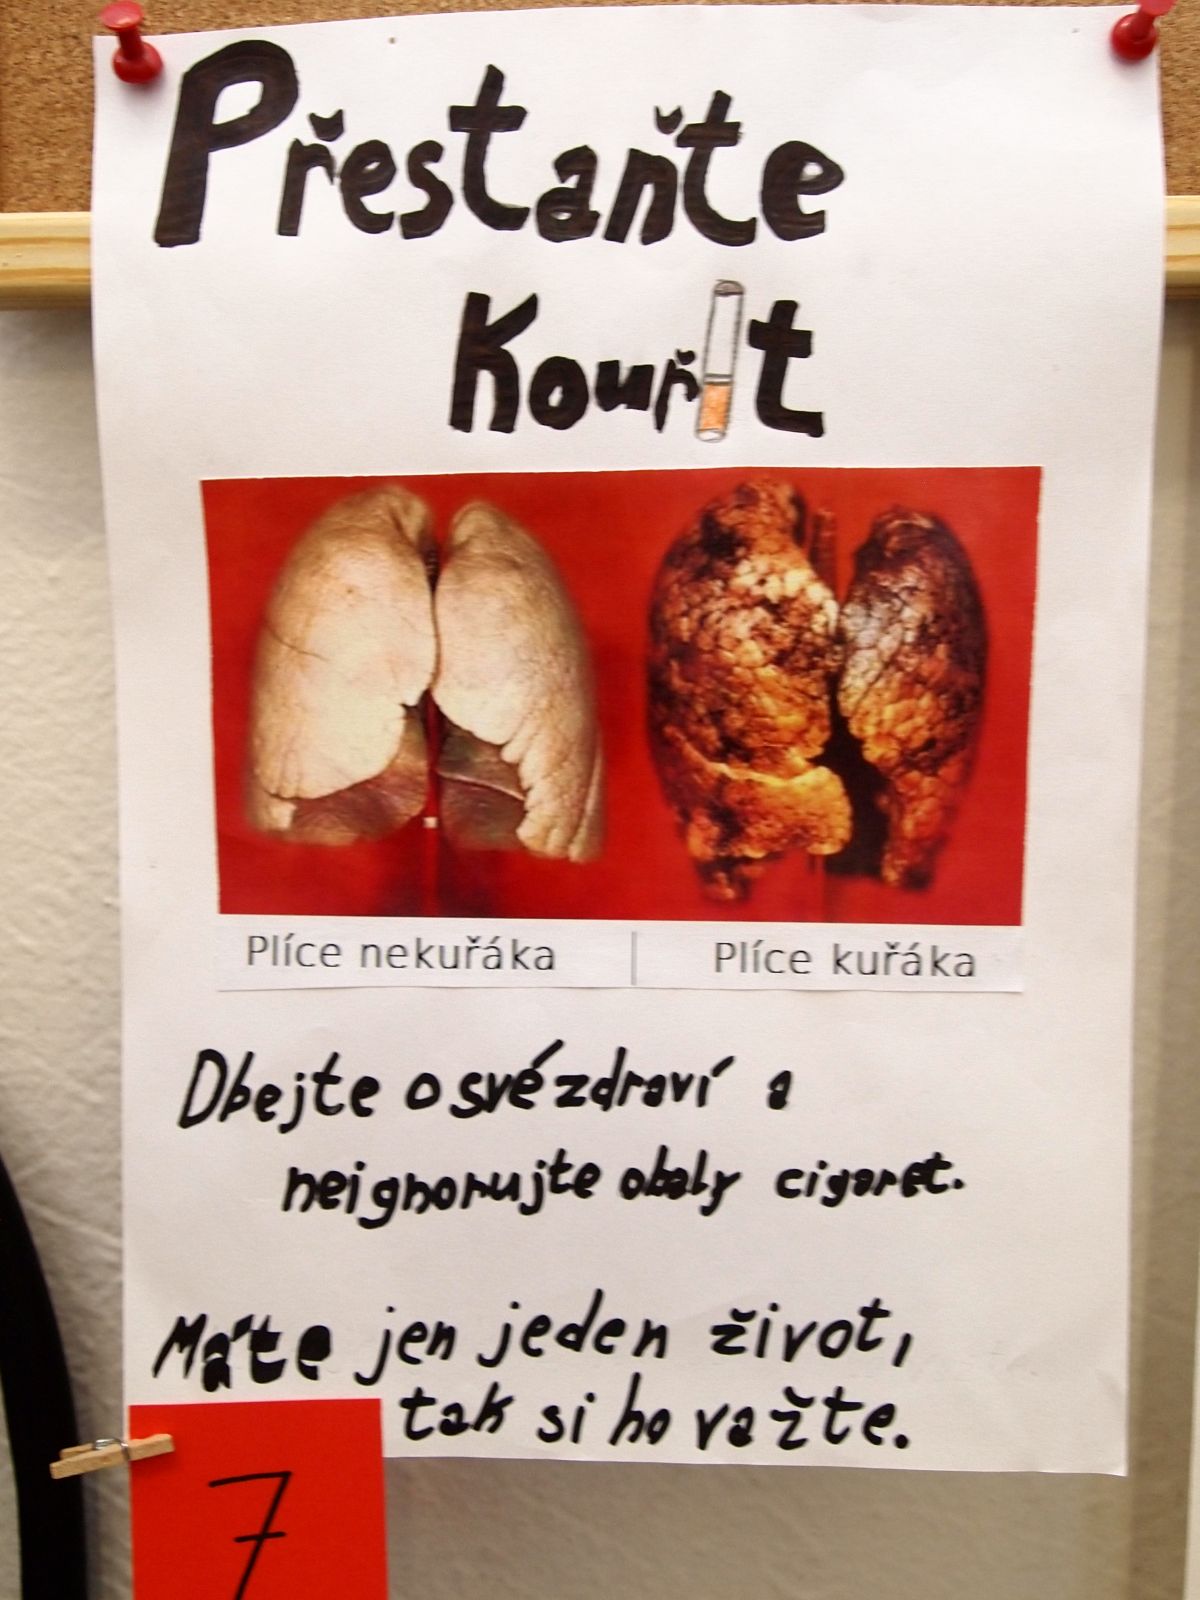 Přestaňte
Kouřit
Plíce nekuřáka | Plíce kuřáka
Dbejte o své zdraví a
neignorujte obaly cigaret.
Máte jen jeden život,
tak si ho važte.
7